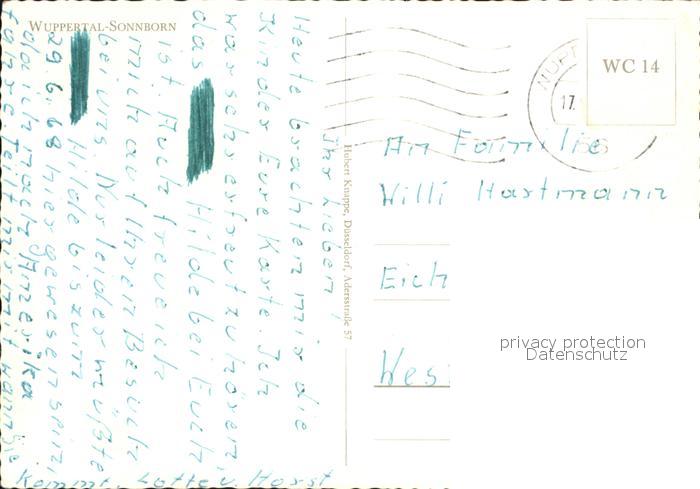 WUPPERTAL-SONNBORN
Ihr Lieben!
Heute brachten mir die
Kinder Eure Karte. Ich
war sehr erfreut zu hören,
das Hilde bei Euch
ist. Auch freue ich
mich auf Ihren Besuch
bei uns. Nur leider müßte
Hilde bis zum
29.6.68 hier gewesen sein,
da ich nach Amerika
fahre. Teilt mir mit wann sie
kommt. Lotte u. Horst
Hubert Knuppe, Düsseldorf, Adersstraße 57
WUPP
17.
WC 14
An Familie
Willi Hartmann
Eich
Wes
privacy protection
Datenschutz